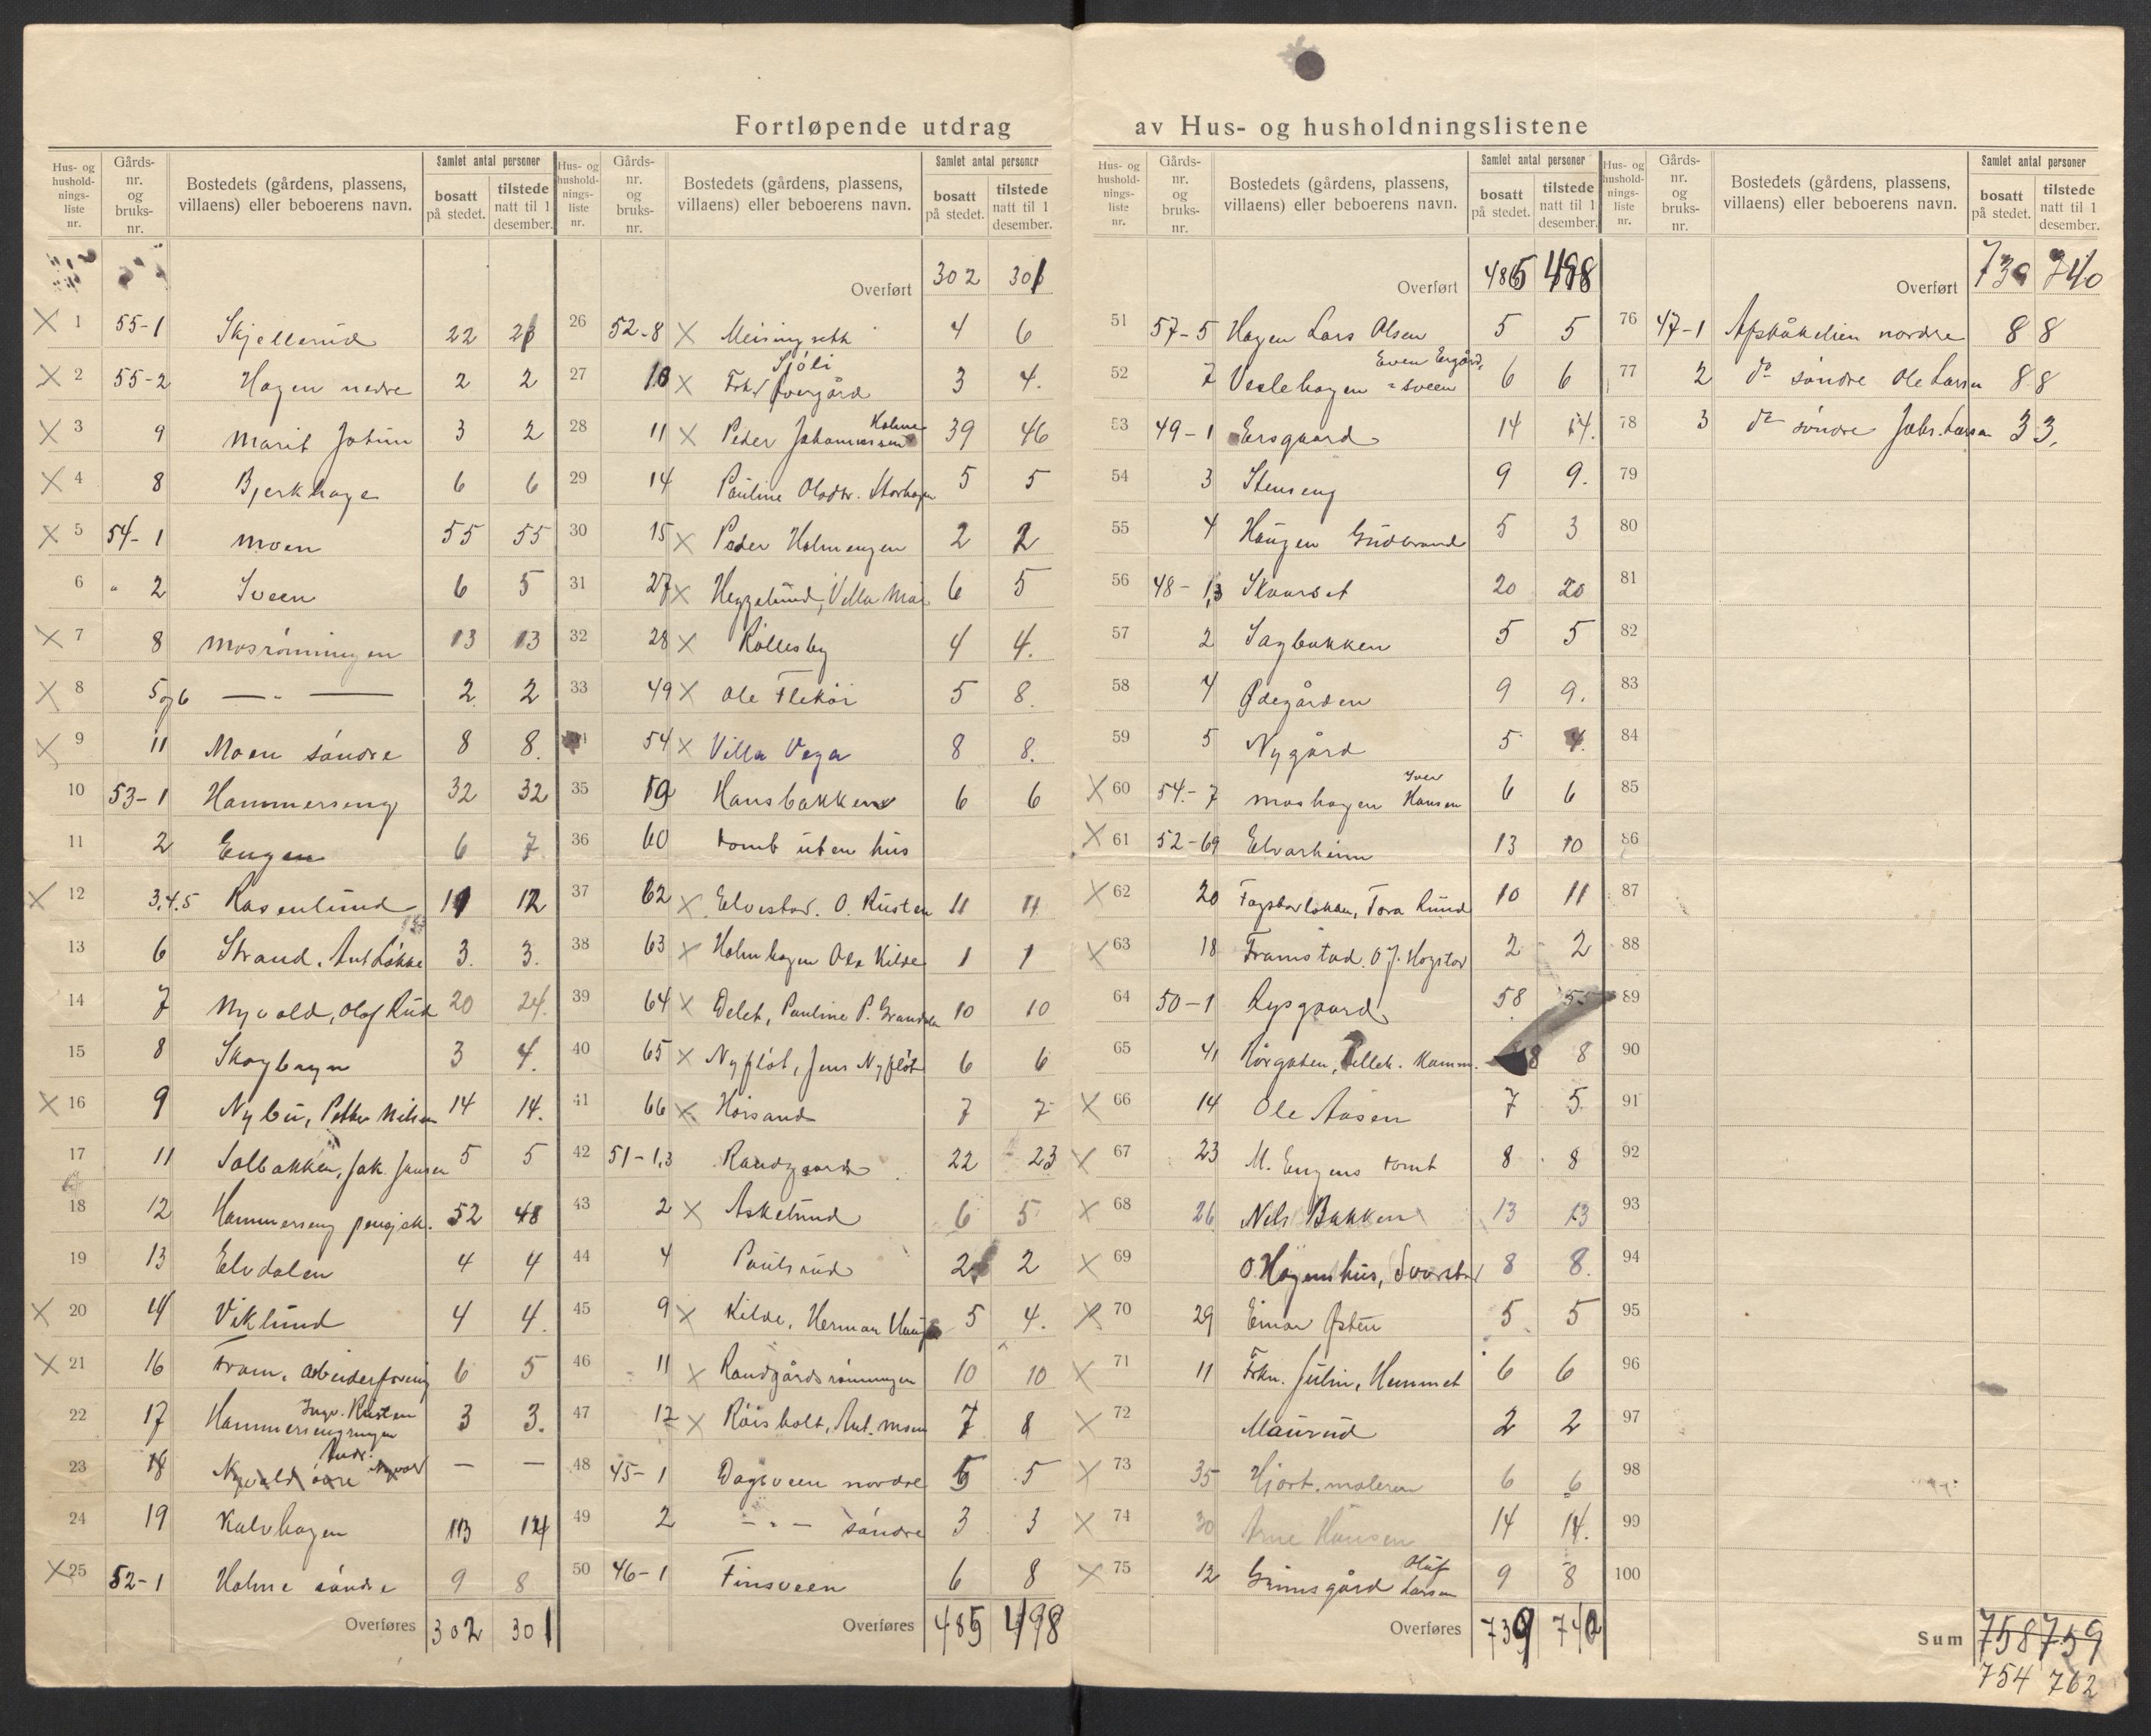 Fortløpende utdrag av Hus- og husholdningslistene
Hus- og hushold-nings-liste nr. Gårds-nr. og bruks-nr. Bostedets (gårdens, plassens, villaens) eller beboerens navn. Samlet antal personer bosatt på stedet. tilstede natt til 1 desember.
1 55-1 Skjellerud 22
2 55-2 Hagen nedre 2 2
3 9 Marit Jotun 3 2
4 8 Bjerkhage 6 6
5 54-1 Moen 55 55
6 " 2 Sveen 6 5
7 8 Mosrønningen 13 13
8 5 og 6 — " — 2 2
9 11 Moen søndre 8 8.
10 53-1 Hammerseng 32 32
11 2 Engen 6 7
12 3,4,5 Rosenlund 12
13 6 Strand, Ant Løkke 3. 3.
14 7 Nyvold, Olaf Rud 20 24.
15 8 Skogbryn 3 4.
16 9 Nybu, Petter Nilsen 14 14.
17 11 Solbakken, Jak. Jansen 5 5
18 12 Hammerseng 52 48
19 13 Elvdalen 4 4
20 14 Viklund 4 4.
21 16 Fram, arbeiderforening 6 5
22 17 Hammersengringen Ingv. Rusten 3 3.
23 18 Nyvold øvre Andr. Nyvold — —
24 19 Kalvhagen 13 14
25 52-1 Holme søndre 9 8
Overføres 302 301
Hus- og hushold-nings-liste nr. Gårds-nr. og bruks-nr. Bostedets (gårdens, plassens, villaens) eller beboerens navn. Samlet antal personer bosatt på stedet. tilstede natt til 1 desember.
Overført 302 301
26 52-8 Meisingsett 4 6
27 10 Frk. Øvergård Sjöli 3 4.
28 11 Peder Johannessen Holme 39 46
29 14 Pauline Olsdtr. Storhagen 5 5
30 15 Peder Holmengen 2 2
31 27 Heggelund, Villa Mai 6 5
32 28 Røllesby 4 4.
33 49 Ole Flekøi 5 8.
54 Villa Vega 8 8.
35 59 Hansbakken 6 6
36 60 tomt uten hus
37 62 Elvestad. O. Rusten 11 11
38 63 Holmhagen Ole Kilde 1 1
39 64 Delet, Pauline P. 10 10
40 65 Nyfløt, Jens Nyfløt 6 6
41 66 Høisand 7 7
42 51-1,3 Randgaard 22 23
43 2 Askelund 6 5
44 4 Paulsrud 2 2
45 9 Kilde, Herman 5 4.
46 11 Randgårdsrønningen 10 10
47 12 Røisholt, Ant. Moen 7 8
48 45-1 Dagsveen nordre 5 5
49 2 — " — søndre 3 3
50 46-1 Finsveen 6 8
Overføres 485 498
Hus- og hushold-nings-liste nr. Gårds-nr. og bruks-nr. Bostedets (gårdens, plassens, villaens) eller beboerens navn. Samlet antal personer bosatt på stedet. tilstede natt til 1 desember.
Overført 485 498
51 57-5 Hagen Lars Olsen 5 5
52 7 Veslehagen = sveen Even Ersgård 6 6
53 49-1 Ersgaard 14 14.
54 3 Stenseng 9 9.
55 4 Haugen Gudbrand 5 3
56 48-1,3 Skaarset 20 20
57 2 Sagbakken 5 5
58 4 Ødegården 9 9.
59 5 Nygård 5 4.
60 54-7 Moshagen Iver Hansen 6 6
61 52-69 Elvarheim 13 10
62 20 Fagstadløkken, Tora Rund 10 11
63 18 Framstad. O. J. Hogstad 2 2
64 50-1 Rysgaard 58 55
65 41 8 8
66 14 Ole Aasen 7 5
67 23 M. Engens tomt 8 8
68 26 Nels Bakken 13 13
69 O. Hagens hus, 8 8.
70 29 Einar Østen 5 5
71 11 Frkn. Julin, Hemmet 6 6
72 Maurud 2 2
73 35 Hjort. maleren 6 6
74 30 Arne Hansen 14 14.
75 12 Grimsgård Oluf Larsen 9 8
Overføres 739 740
Hus- og hushold-nings-liste nr. Gårds-nr. og bruks-nr. Bostedets (gårdens, plassens, villaens) eller beboerens navn. Samlet antal personer bosatt på stedet. tilstede natt til 1 desember.
Overført 739 740
76 47-1 nordre 8 8
77 2 do søndre Ole Larsen 8 8
78 3 do søndre Johs. Larsen 3 3.
79
80
81
82
83
84
85
86
87
88
89
90
91
92
93
94
95
96
97
98
99
100
Sum 758 759
754 762